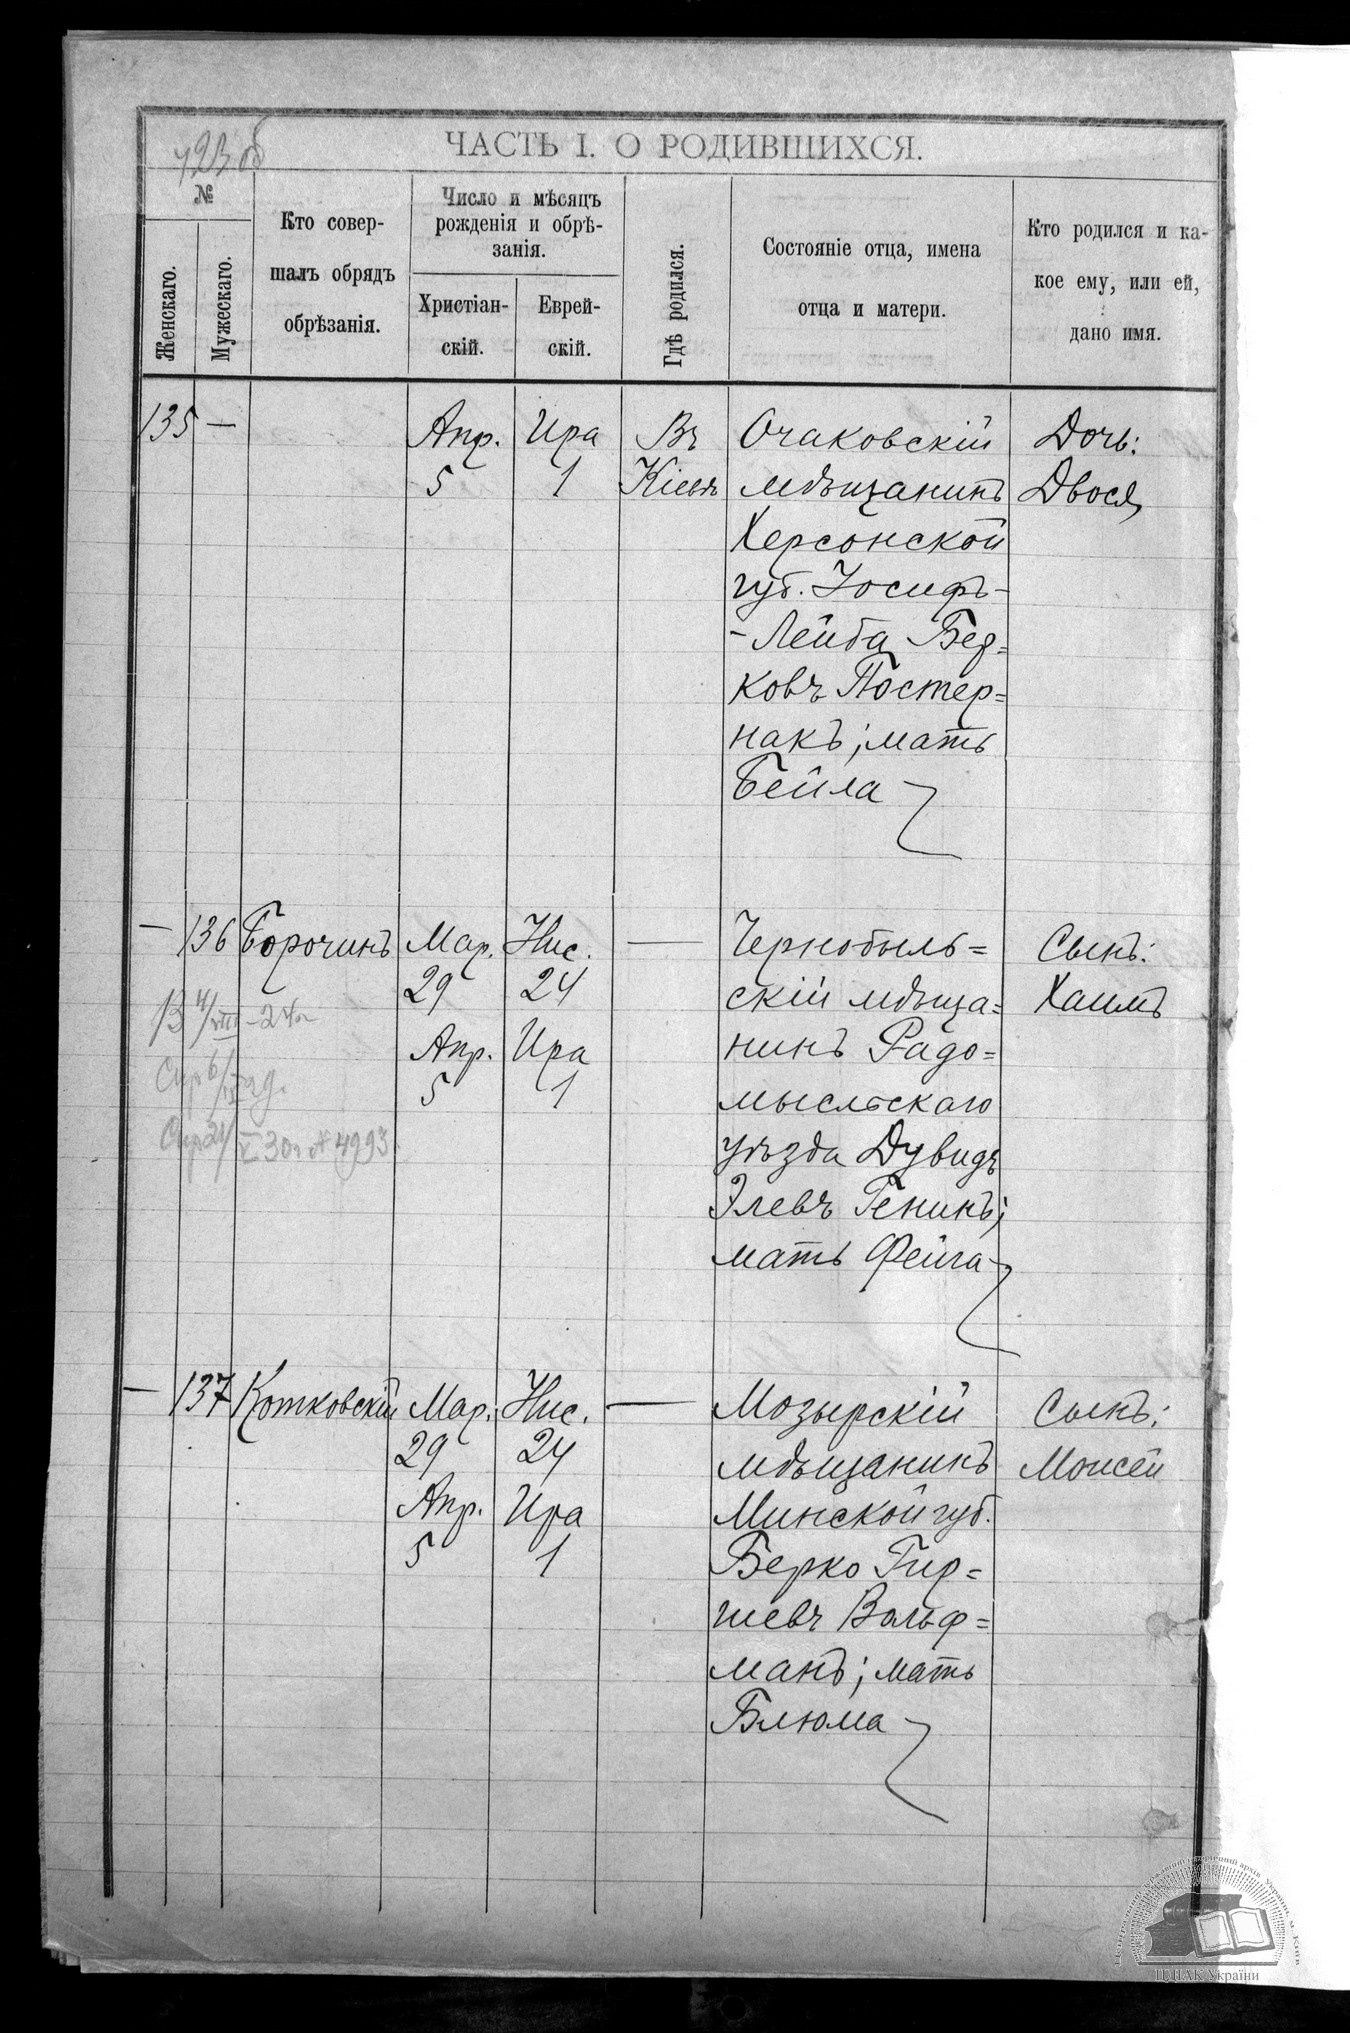 ЧАСТЬ I. О РОДИВШИХСЯ.
№
Женскаго.
Мужескаго.
Кто совер-
шалъ обрядъ
обрѣзанія.
Число и мѣсяцъ
рожденія и обрѣ-
занія.
Христіан-
скій.
Еврей-
скій.
Гдѣ родился.
Состояніе отца, имена
отца и матери.
Кто родился и ка-
кое ему, или ей,
дано имя.
135 —
Апр.
5
Ира
1
Въ
Кіевѣ
Очаковскій
мѣщанинъ
Херсонской
губ. Іосифъ-
-Лейба Бер=
ковъ Постер=
накъ; мать
Бейла
Дочь:
Двося
— 136
Борочинъ
Мар.
29
Апр.
5
Нис.
24
Ира
1
—
Чернобыль=
скій мѣща=
нинъ Радо=
мысльскаго
уѣзда Дувидъ
Элевъ Генинъ;
мать Фейга
Сынъ:
Хаимъ
— 137
Котковскій
Мар.
29
Апр.
5
Нис.
24
Ира
1
—
Мозырскій
мѣщанинъ
Минской губ.
Берко Гир=
шевъ Вольф=
манъ; мать
Блюма
Сынъ:
Моисей
ЦДІАК України